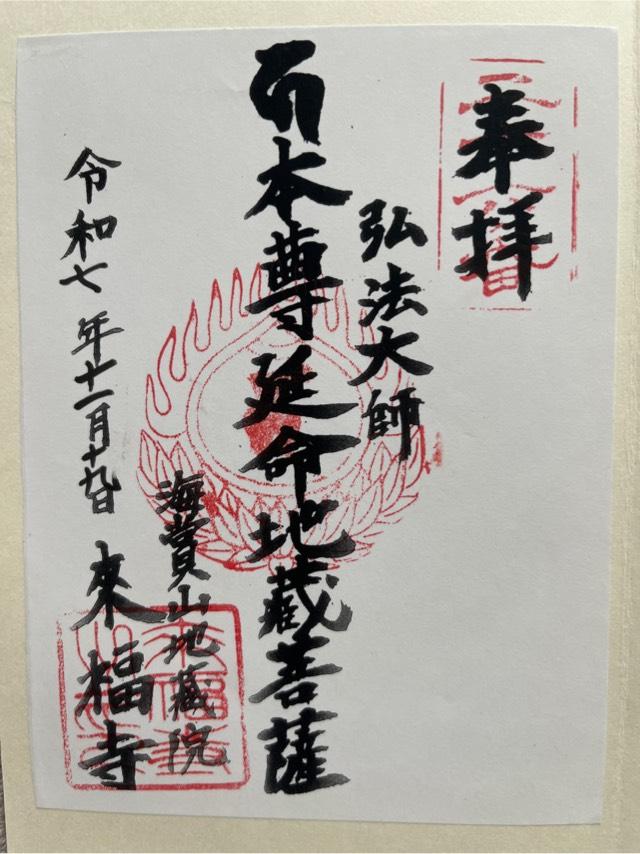 奉拝
弘法大師
本尊延命地蔵菩薩
海賞山地蔵院
來福寺
令和七年十一月十九日